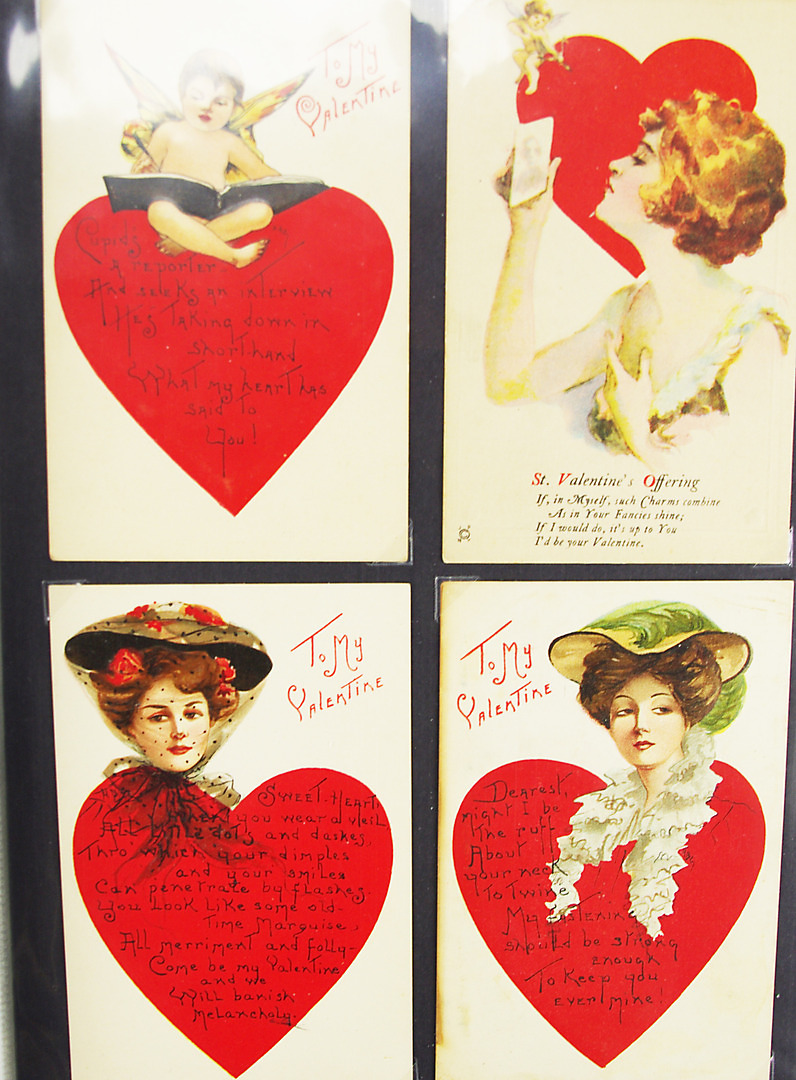 To My
Valentine
Cupid's
A reporter
And seeks an interview
He's Taking down in
Shorthand
What my heart has
said To
You!
St. Valentine's Offering
If, in Myself, such Charms combine
As in Your Fancies shine;
If I would do, it's up to You
I'd be your Valentine.
To My
Valentine
SWEET-HEART,
when you wear a veil
All little dots and dashes,
Thro' which your dimples
and your smiles
Can penetrate by flashes.
You Look Like some old-
Time Marquise,
All merriment and folly-
Come be my Valentine
and we
Will banish
Melancholy.
To My
Valentine
Dearest,
might I be
The ruff
About
your neck
To Twine
My fastening
should be strong
enough
To Keep you
ever mine!